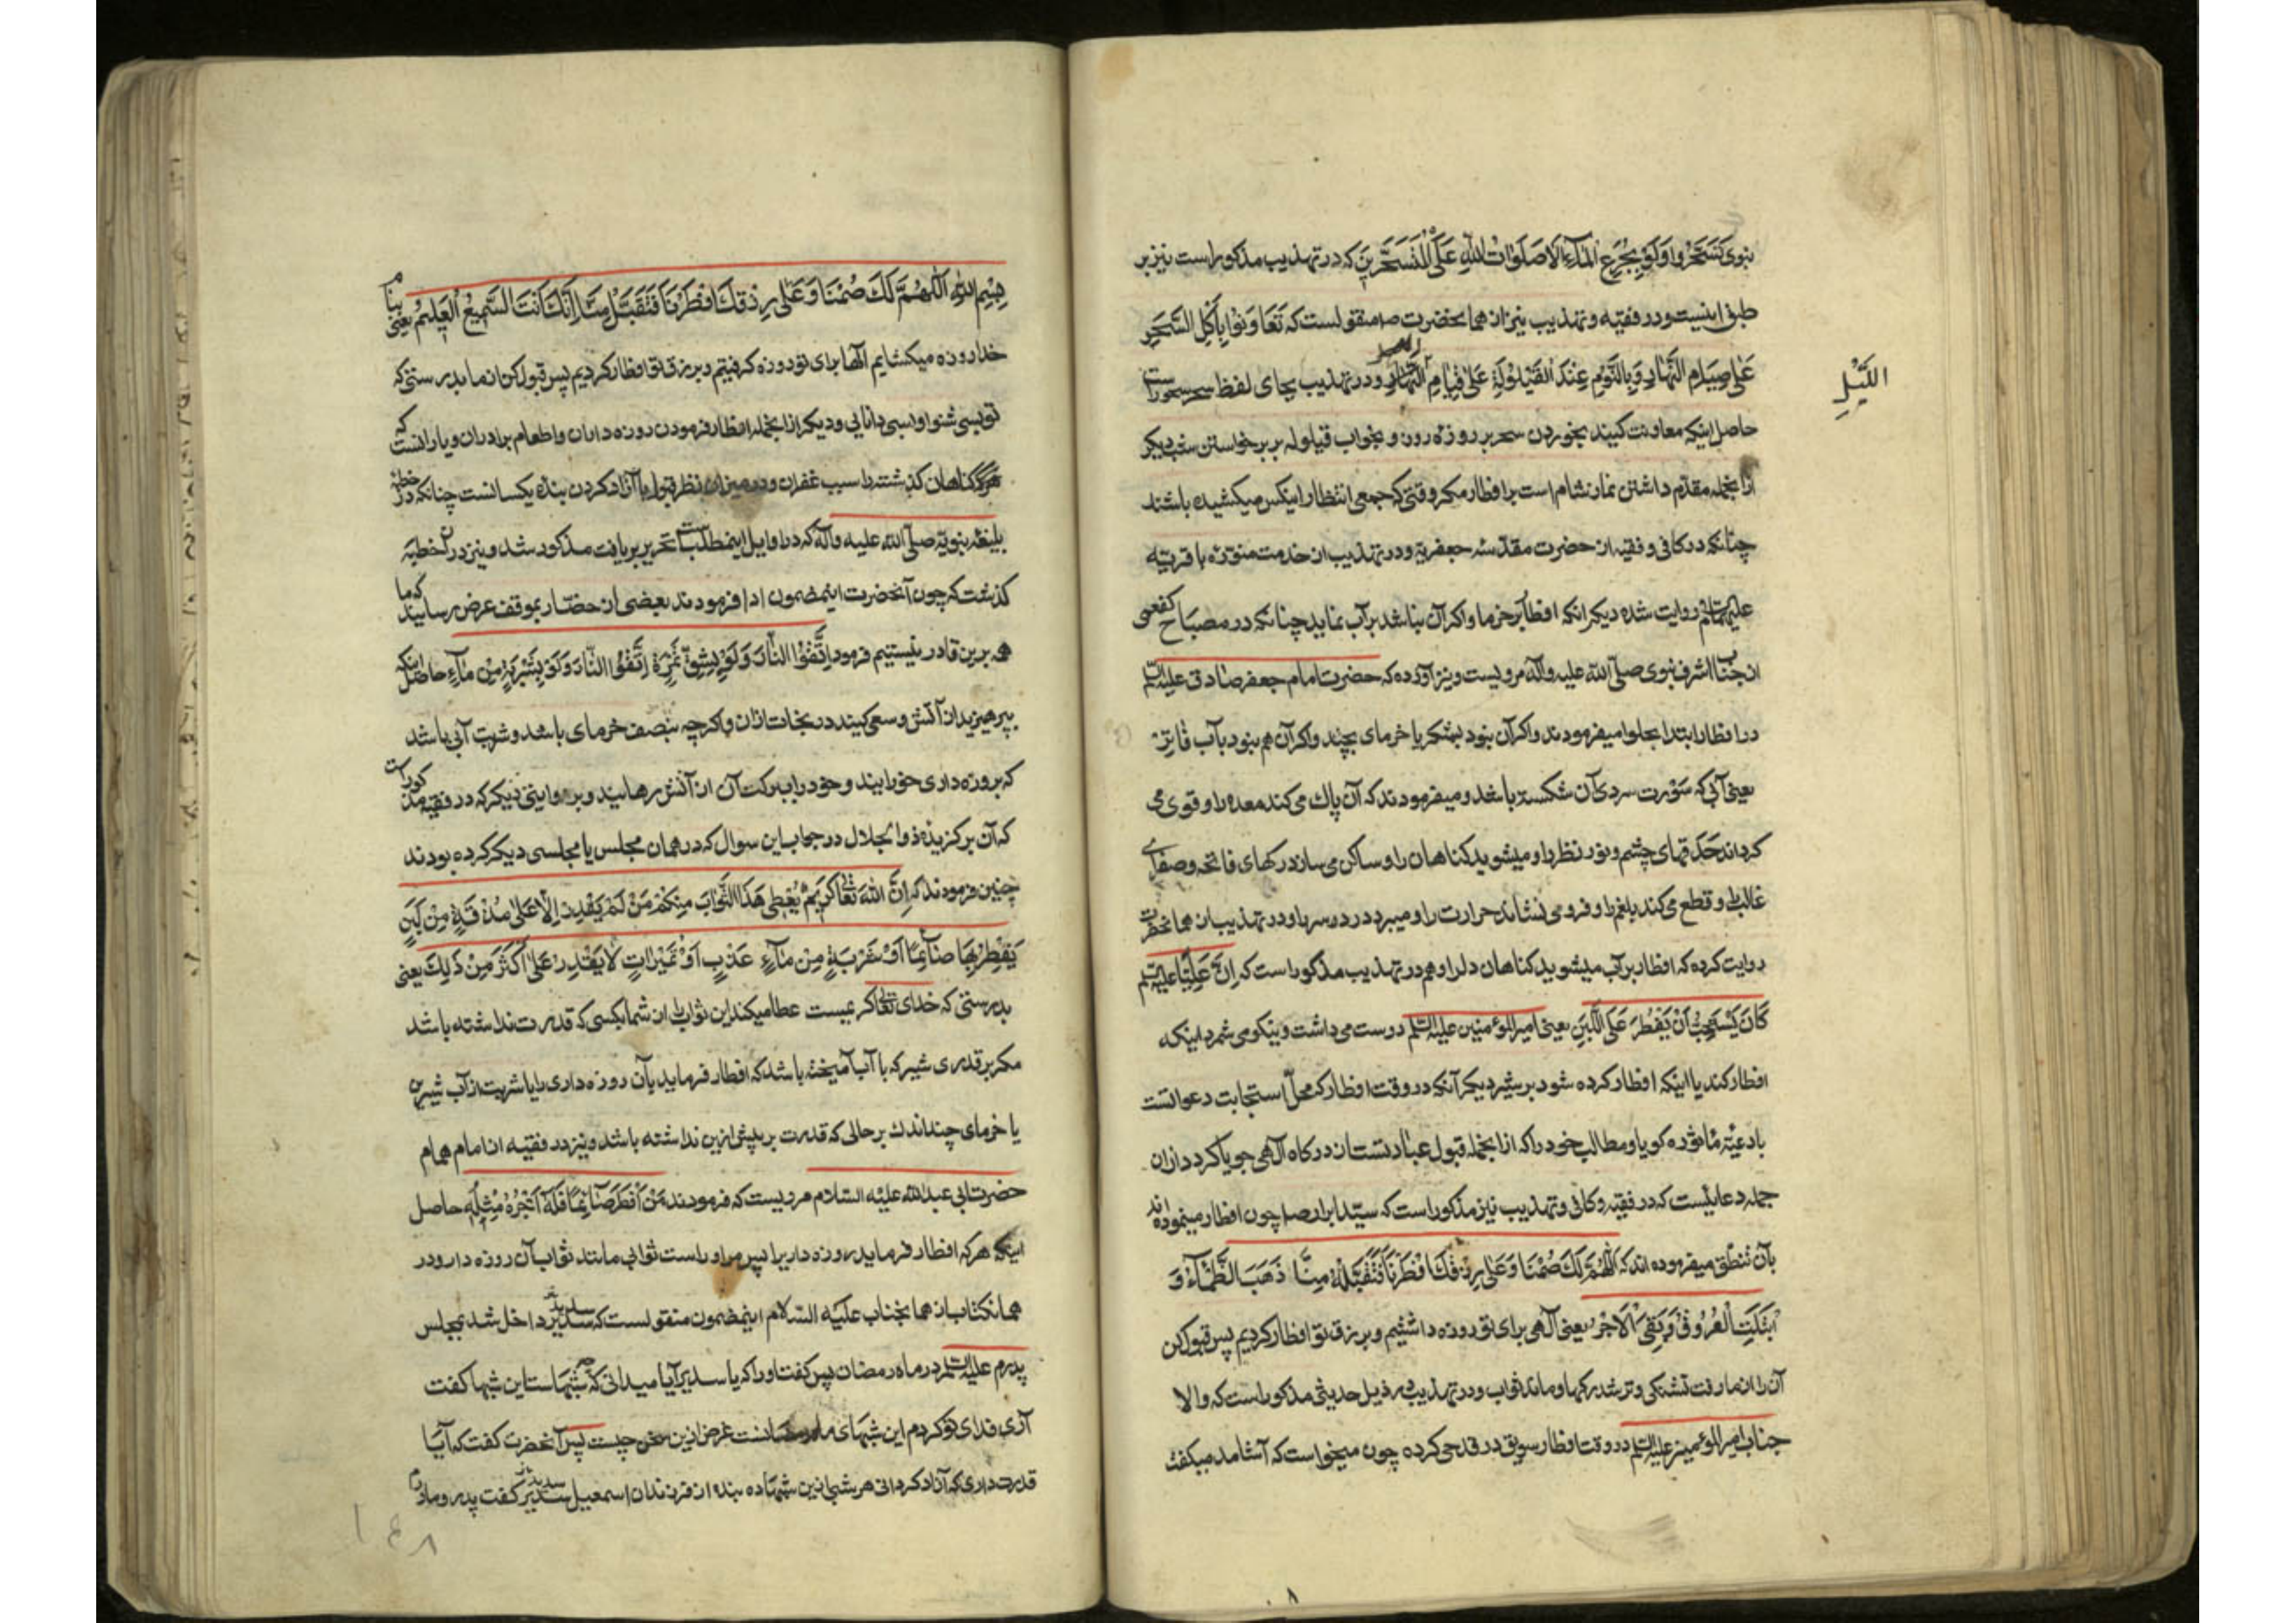 نبوی تَسَحَّرُوا وَلَوْ بِجُرَعِ الْمَآءِ اَلَا صَلَوَاتُ اللهِ عَلَى الْمُتَسَحِّرِينَ که در تهذیب مذکور است نیز بر
طبق اینست و در فقیه و تهذیب نیز از همانحضرت ص منقولست که تَعَاوَنُوا بِاَكْلِ السَّحَرِ
عَلٰى صِيَامِ النَّهَارِ وَبِالنَّوْمِ عِنْدَ الْقَيْلُولَةِ عَلٰى قِيَامِ و در تهذیب بجای لفظ سحر سحورست
اللَّيْلِ
حاصل اینکه معاونت کنید بخوردن سحر بر روزه روز و بخواب قیلوله بر برخواستن شب دیگر
ازانجمله مقدّم داشتن نماز شام است بر افطار مکر وقتی که جمعی انتظار اینکس میکشیده باشند
چنانکه در کافی و فقیه از حضرت مقدّسه جعفریّه و در تهذیب از خدمت منوّره باقریّه
علیهما السلم روایت شده دیکر انکه افطار بر خرما و اکر آن نباشد بر آب نماید چنانکه در مصباح کفعمی
از جناب اشرف نبوی صلّی الله علیه وآله مرویست و نیز آورده که حضرت امام جعفر صادق علیه السلم
در افطار ابتدا بحلوا میفرمودند و اکر آن نبود بشکر یا خرمای چند و اکر آن هم نبود بآب فاتر
یعنی آبی که سَوْرت سردی آن شکسته باشد و میفرمودند که آن پاك می کند معده را و قوی می
کرداند حَدَقهای چشم و نور نظر را و میشوید کناهان را و ساکن می سازد رکهای و صفرای
غالب را و قطع می کند بلغم را و فرو می نشاند حرارت را و میبرد درد سر را و در تهذیب از همانحضرت
روایت کرده که افطار بر آب میشوید کناهان دل را و هم در تهذیب مذکور است که اِنَّ عَلِيًّا علیه السلم
كَانَ يَسْتَحِبُّ اَنْ يُفْطِرَ عَلَى اللَّبَنِ یعنی امیر المؤمنین علیه السلم دوست می داشت و نیکو می شمرد اینکه
افطار کند یا اینکه افطار کرده شود بر شیر دیکر آنکه در وقت افطار که محلّ استجابت دعوا‌تست
بادعیّه مأثوره کویا و مطالب خود را که ازانجمله قبول عبادتست از درکاه آلهی جویا کردد ازان
جمله دعائیست که در فقیه و کافی و تهذیب نیز مذکور است که سیّد ابرار ص چون افطار مینموده‌اند
بآن تنطّق میفرموده اند که اَللّٰهُمَّ لَكَ صُمْنَا وَعَلٰى رِزْقِكَ اَفْطَرْنَا فَتَقَبَّلْهُ مِنَّا ذَهَبَ الظَّمَآءُ وَ
ابْتَلَّتِ الْعُرُوقُ وَبَقِىَ الْاَجْرُ یعنی آلهی برای تو روزه داشتیم و بر رزق تو افطار کردیم پس قبول کن
آن را از ما رفت تشنکی و تر شد رکها و ماند ثواب و در تهذیب در ذیل حدیثی مذکور است که والا
جناب امیر المؤمنین علیه السلم در وقت افطار سویق در قدحی کرده چون میخواست که آشامد میکفت
بِسْمِ اللهِ اَللّٰهُمَّ لَكَ صُمْنَا وَعَلٰى رِزْقِكَ اَفْطَرْنَا فَتَقَبَّلْ مِنَّا اِنَّكَ اَنْتَ السَّمِيعُ الْعَلِيمُ یعنی بنام
خدا روزه میکشایم آلها برای تو روزه کرفتیم و بر رزق تو افطار کردیم پس قبول کن از ما بدرستی که
تو بسی شنوا و بسی دانایی و دیکر ازانجمله افطار فرمودن روزه داران و اطعام برادران و یارانست که
کناهان کذشته را سبب غفران و در میزان نظر قبول با آزاد کردن بنده یکسانست چنانکه در خطبه
بلیغه نبویّه صلّی الله علیه وآله که در اوایل اینمطلب تحریر یافت مذکور شد و نیز دران خطبه
کذشت که چون آنحضرت اینمضمون ادا فرمودند بعضی از حضّار بموقف عرض رسانیدند که ما
همه برین قادر نیستیم فرمود اِتَّقُوا النَّارَ وَلَوْ بِشِقِّ تَمْرَةٍ اِتَّقُوا النَّارَ وَلَوْ بِشَرْبَةٍ مِنْ مَآءٍ حاصل اینکه
بپرهیزید از آتش و سعی کنید در نجات ازان و اکرچه بنصف خرمای باشد و شربت آبی باشد
که بروزه داری خورانید و خود را ببرکت آن از آتش رهانید و بروایتی دیکر که در فقیه مذکور است
که آن برکزیده ذوالجلال در جواب این سوال که در همان مجلس یا مجلسی دیکر کرده بودند
چنین فرمودند که اِنَّ اللهَ تَعَالٰى كَرِيمٌ يُعْطِى هٰذَا الثَّوَابَ مِنْكُمْ مَنْ لَمْ يَقْدِرْ اِلَّا عَلٰى مُذْقَةٍ مِنْ لَبَنٍ
يُفْطِرُ بِهَا صَآئِمًا اَوْ شَرْبَةٍ مِنْ مَآءٍ عَذْبٍ اَوْ تُمَيْرَاتٍ لَا يَقْدِرُ عَلٰى اَكْثَرَ مِنْ ذٰلِكَ یعنی
بدرستی که خدای تعالی کریمیست عطا میکند این ثواب را از شما بکسی که قدرت نداشته باشد
مکر بر قدری شیر که با آب آمیخته باشد که افطار فرماید بآن روزه داری را یا شربت از آب شیرین
یا خرمای چند اندك بر حالی که قدرت بر بیش ازین نداشته باشد و نیز در فقیه از امام همام
حضرت ابی عبد الله علیه السلام مرویست که فرمودند مَنْ اَفْطَرَ صَآئِمًا فَلَهُ اَجْرُهُ مِثْلُهُ حاصل
اینکه هر که افطار فرماید روزه داری را پس مر او راست ثوابی مانند ثواب آن روزه دار و در
همانکتاب از همانجناب علیه السلام اینمضمون منقولست که سدیر داخل شد بمجلس
پدرم علیه السلم در ماه رمضان پس کفت او را که یا سدیر آیا میدانی که چه شبهاست این شبها کفت
آری فدای تو کردم این شبهای ماه رمضانست غرض ازین سخن چیست پس آنحضرت کفت که آیا
قدرت داری که آزاد کردانی هر شب ازین شبها ده بنده از فرزندان اسمعیل سدیر کفت پدر و مادرم
۱۴۸